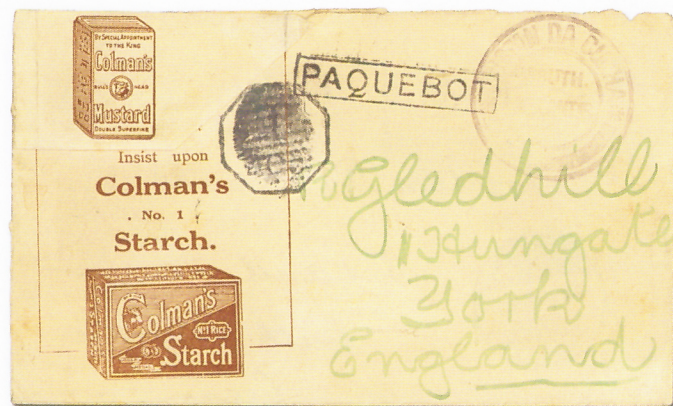 By Special Appointment
To the King
Colman's
Bull's Head
Mustard
Double Superfine
Insist upon
Colman's
. No. 1 .
Starch.
Colman's
No 1 Rice
Starch
PAQUEBOT
1
Gledhill
1 Hungate
York
England